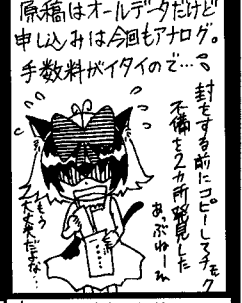 原稿はオールデータだけど
申し込みは今回もアナログ。
手数料がイタイので…。
封をする前にコピーしてチェック
不備を2カ所発見した
あっぶねーな
もう
大丈夫だよな…